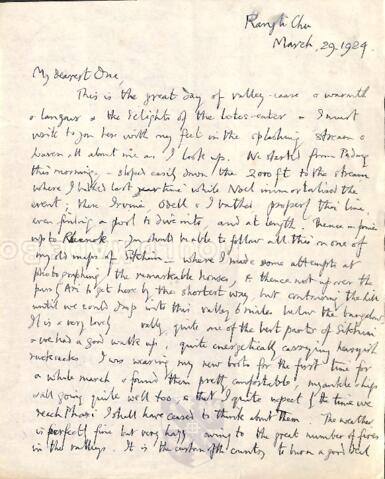 Rangli Chu
March, 29. 1924
My dearest One,
This is the great day of valley-ease & warmth
& langour & the delights of the lotos-eater & I must
write to you here with my feet in the splashing stream &
heaven all about me as I look up. We started from Pedong
this morning, - sloped easily down the 2000 ft to the stream
where I bathed last year time while Noel immortalised the
event; there Irvine Odell & I bathed properly this time
even finding a pool to dive into, and at length thence
up to Rhenok. You should be able to follow all this on one of
my old maps of Sikkim - where I made some attempts at
photographing the remarkable houses, & thence not up over the
pass (Ari) to get here by the shortest way, but contouring the hill
until we could drop into this valley 6 miles below the bungalow
It is a very lovely valley, quite one of the best parts of Sikkim
& we had a good walk up, quite energetically carrying
rucksacks. I was wearing my new boots for the first time for
a whole march & found them pretty comfortable; my ankle
all going quite well too & that I quite expect by the time we
reach Phari I shall have ceased to think about them. The weather
is perfectly fine but very hazy owing to the great number of fires
in the valleys. It is the custom of the country to burn a good deal